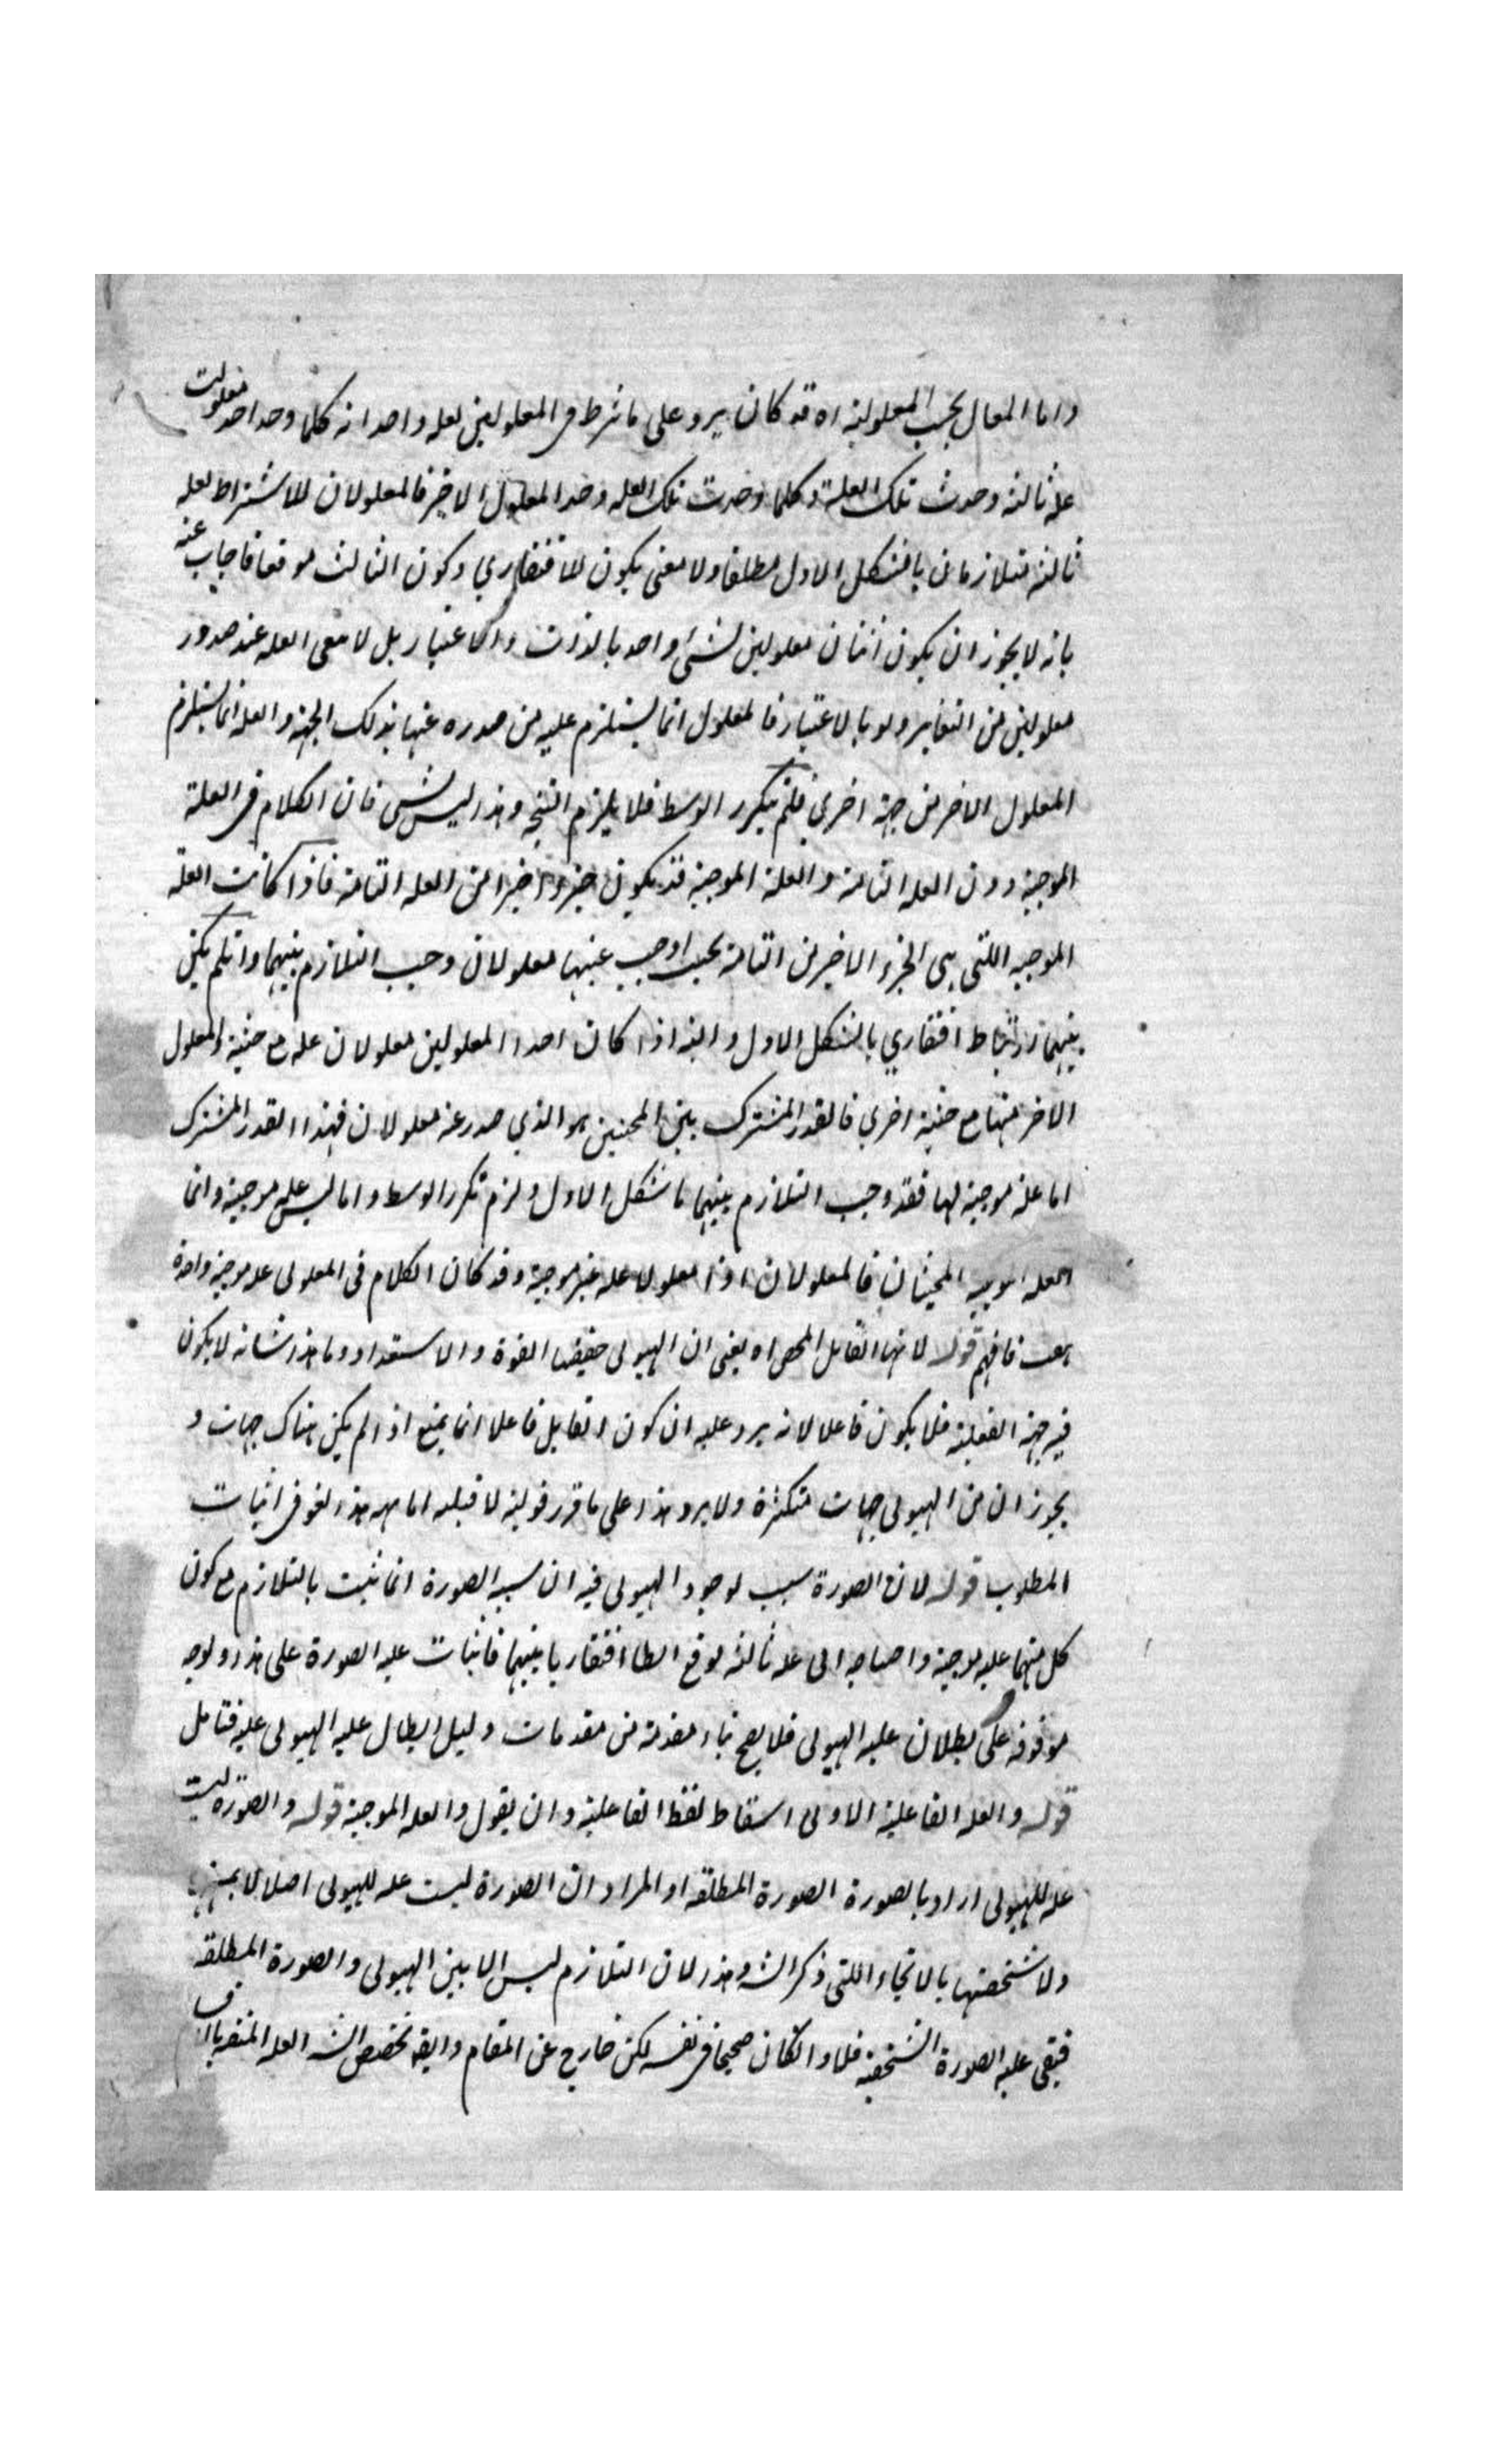 واما المعان بحسب المعلولية اه قد كان يرد على ما شرط فى المعلولين لعله واحد انه كلما وجد احد معلولات
علة ثالثة وجدت تلك العلة وكلما وجدت تلك العله وجد المعلول الاخر فالمعلولان للاشتراط لعله
ثالثة متلازمان بالشكل الاول مطلقا ولا معنى بكون للافتقاري وكون الثالث موقعا فاجاب عنه
بانه لا يجوز ان يكون اثنان معلولين لشئ واحد بالذات والاعتبار بل لا معى العله عند صدور
معلولين من التغاير ولو بالاعتبار فالمعلول انما يستلزم عليه من صدوره عنها بذلك الجهة والعله انما يستلزم
المعلول الاخر من جهة اخرى فلم يتكرر الوسط فلا يلزم النتيجه وهذا ليس بشى فان الكلام فى العلة
الموجبة دون العله التامة والعلة الموجبة قد يكون جزوا اخيرا من العله التامة فاذا كانت العله
الموجبه اللتى هى الجزء الاخير من التامة بحيث اوجب عنها معلولان وجب التلازم بينهما وانلم يكن
بينهما ارتباط افتقاري بالشكل الاول والبته اذا كان احد المعلولين معلولان عله مع حيثية والمعلول
الاخر منها مع حيثية اخرى فالقدر المشترك بين الحيثيتين هو الذي صدر عنه معلولان فهذا القدر المشترك
اما علة موجبة لها فقد وجب التلازم بينهما بالشكل الاول ولزم تكرر الوسط واما ليس عله موجبة وانما
العله الموجبه الحيثيتان فالمعلولان اذا معلولا عله غير موجبة وقد كان الكلام فى المعلولى عله موجبة واحدة
هف فافهم قوله لانها القابل المحض اه يعنى ان الهيولى حقيقتها القوة والاستعداد وما هذا شانه لا يكون
فيه جهة الفعلية فلا يكون فاعلا لانه يرد عليه ان كون القابل فاعلا انما يمتنع اذا لم يكن هناك جهات و
يجوز ان من الهيولى جهات متكثرة ولا يرد هذا على ما قرر قوليه لا قبله اما هه هذا لغو فى اثبات
المطلوب قوله لان الصورة سبب لوجود الهيولى فيه ان سببيه الصورة انما تثبت بالتلازم مع كون
كل منهما عليه موجبة واحتياجه الى عله ثالثه لوقع ارتباطا افتقاريا بينهما فاثبات عليه الصورة على هذا الوجه
موقوفه على بطلان عليه الهيولى فلا يصح بناء مقدمة من مقدمات دليل ابطال عليه الهيولى عليه فتامل
قوله والعله الفاعلية الاولى اسقاط لفظ الفاعلية وان يقول والعله الموجبة قوله والصورة ليست
عله للهيولى اراد بالصورة الصورة المطلقه او المراد ان الصورة ليست عله للهيولى اصلا لا بمهيتها
ولا شخصيتها بالانحاء اللتى ذكر الشه وهذا لان التلازم ليس الا بين الهيولى والصورة المطلقه
فبقى عليه الصورة الشخصية فلا وانكان صحيحا فى نفسه لكن خارج عن المقام وايضه تخصيص الشه العله المنفيه بالفا